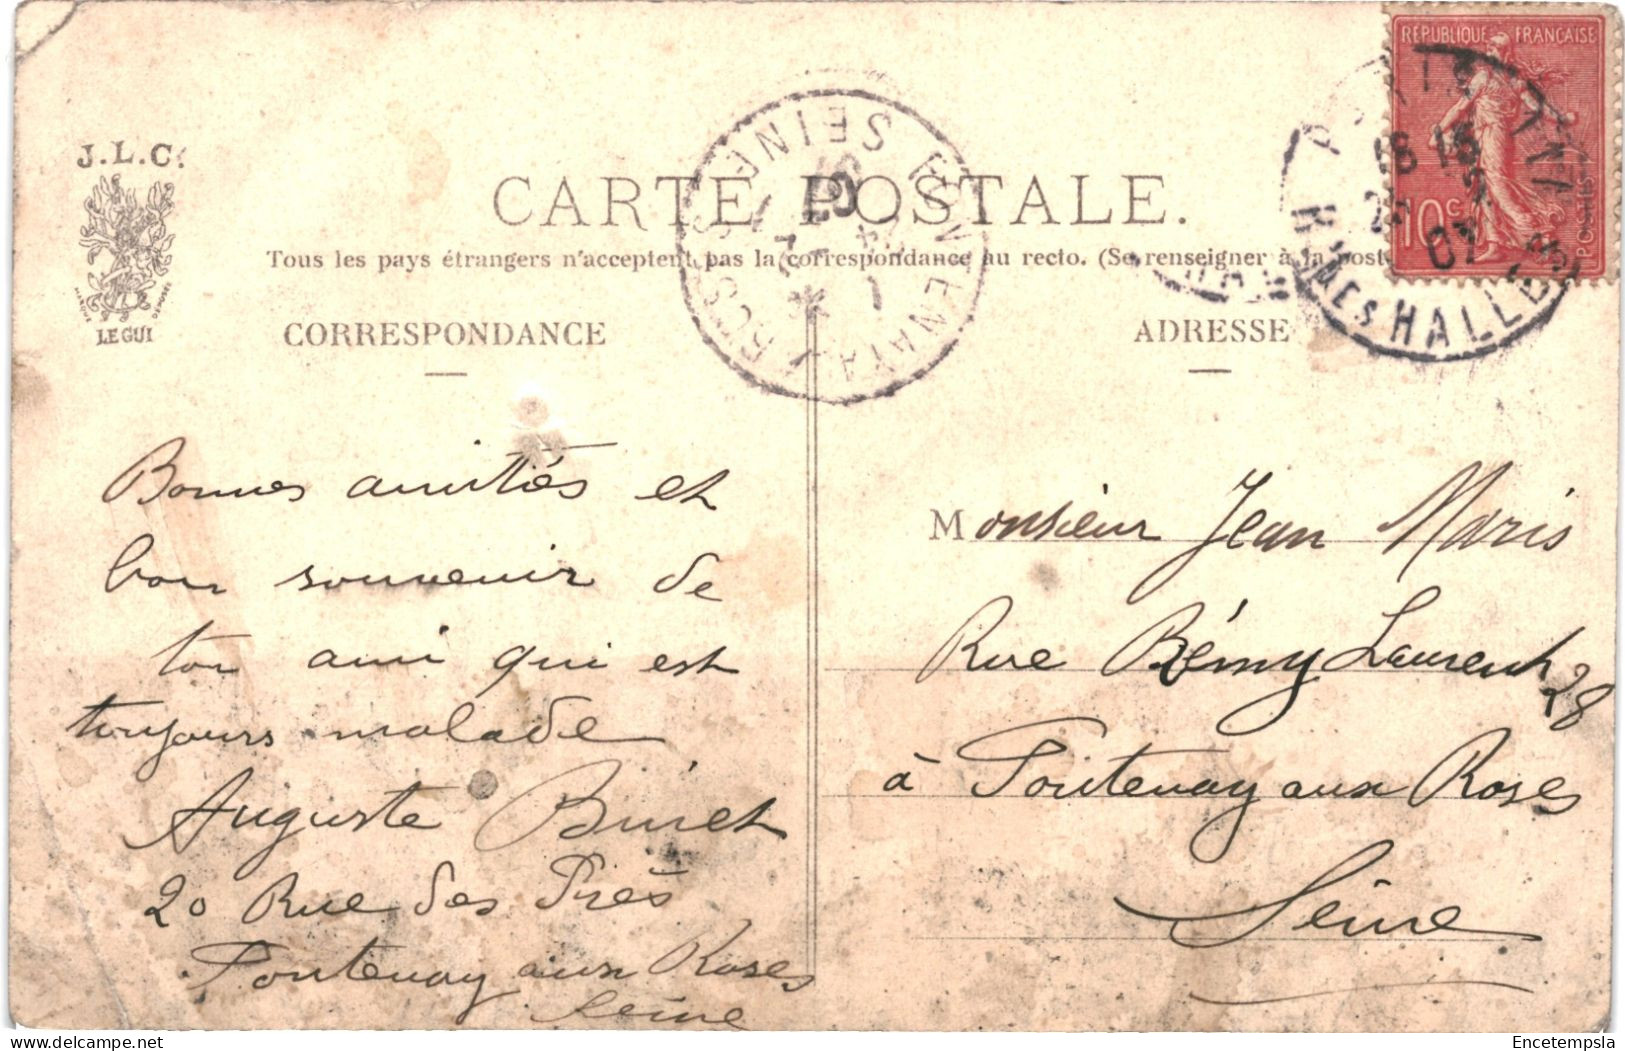 J.L.C.
MARQUE DÉPOSÉE
LE GUI
RÉPUBLIQUE FRANÇAISE
10c
POSTES
PARIS
16 15
07
R. DES HALLES
FONTENAY-AUX-ROSES
SEINE
07
CARTE POSTALE.
Tous les pays étrangers n'acceptent pas la correspondance au recto. (Se renseigner à la post
CORRESPONDANCE
ADRESSE
Bonnes amitiés et
bon souvenir de
ton ami qui est
toujours malade
Auguste Binet
20 Rue des Près
Fontenay aux Roses
Seine
Monsieur Jean Maris
Rue Rémy Laurent 28
à Fontenay aux Roses
Seine
© Encetempsla